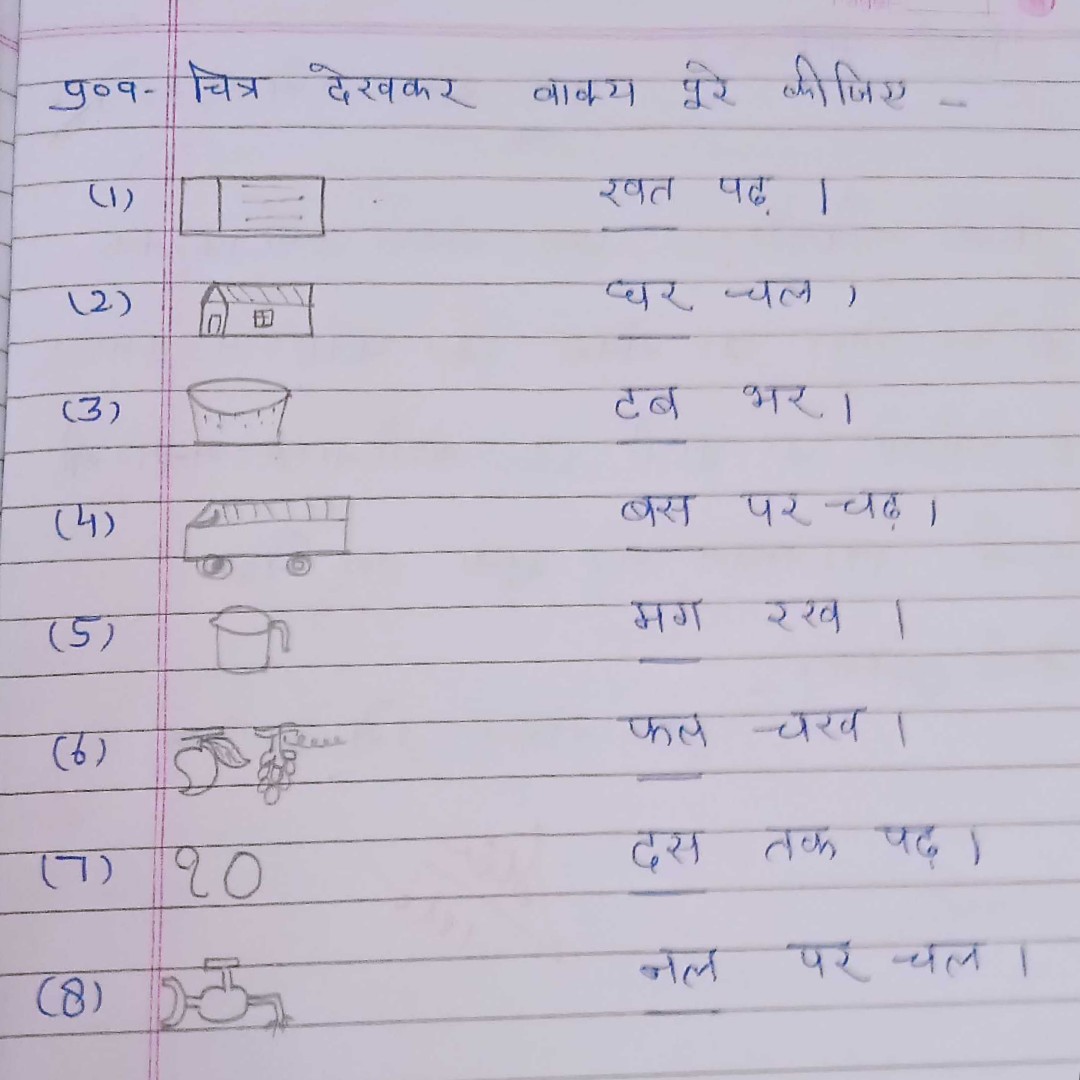 प्र०१- चित्र देखकर वाक्य पूरे कीजिए -
(1) खत पढ़ ।
(2) घर चल ।
(3) टब भर ।
(4) बस पर चढ़ ।
(5) मग रख ।
(6) फल चख ।
(7) १० दस तक पढ़ ।
(8) नल पर चल ।